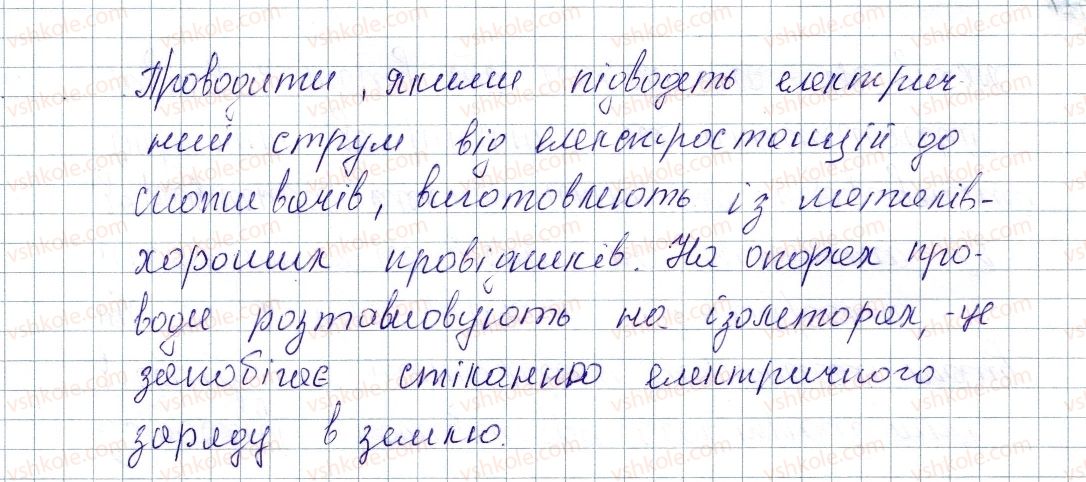 Проводити, якими підводять електрич-
ний струм від електростанцій до
споживачів, виготовляють із металів-
хороших провідників. На опорах про-
води розтавновують на ізоляторах, -це
запобігає стіканню електричного
заряду в землю.